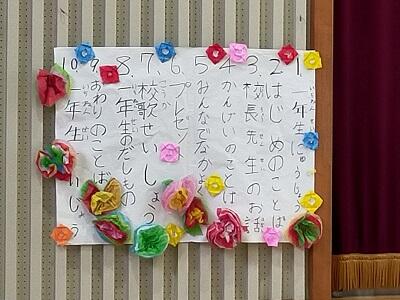 1. 一年生にゅうじょう
2. はじめのことば
3. 校長先生のお話
4. かんげいのことば
5. みんなでなかよ
6. プレゼント
7. 校歌せいしょう
8. 一年生のだしもの
9. おわりのことば
10. 一年生 いじょう